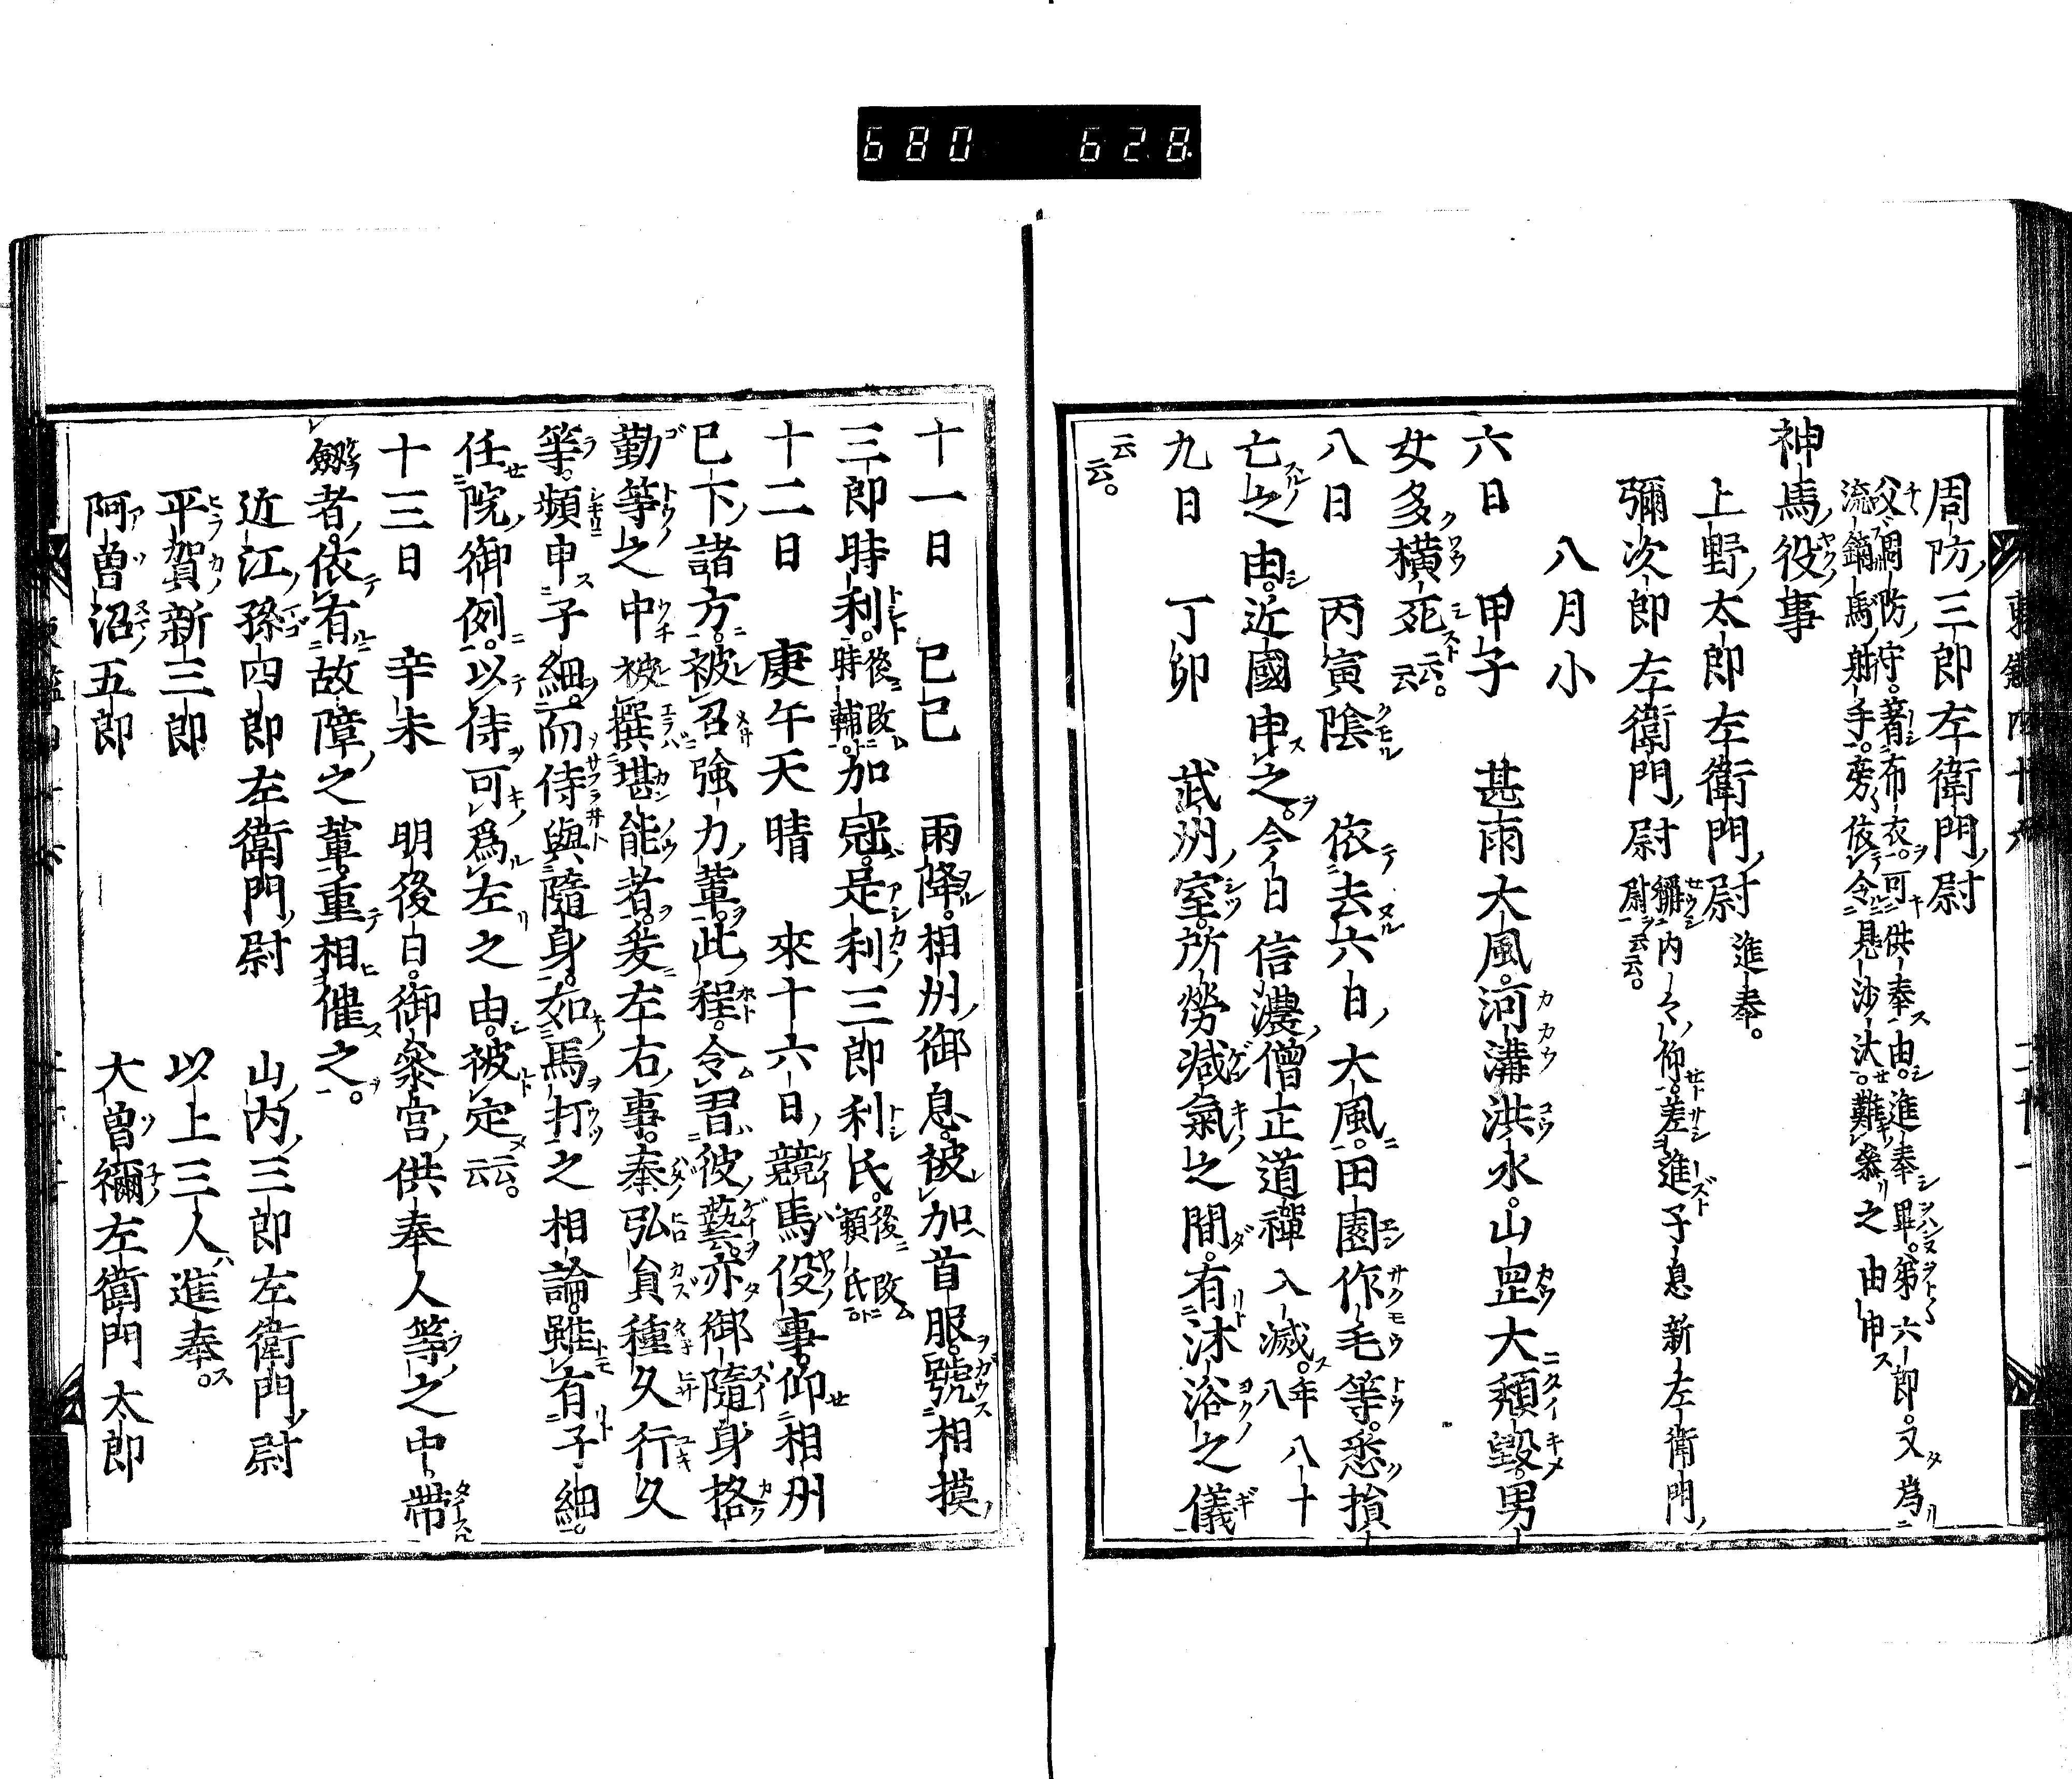 680 628
周防三郎左衛門尉
父周防守。着布衣。可供奉由。進奉畢。第六郎。又為
流鏑馬射手。旁依令見沙汰。難參之由申
神馬役事
上野太郎左衛門尉 進奉。
彌次郎左衛門尉
内々仰。差進子息新左衛門
尉云云。
八月小
六日 甲子 甚雨大風。河溝洪水。山岳大頽毀。男
女多横死云云。
八日 丙寅陰 依去六日大風。田園作毛等。悉損
亡之由。近國申之。今日信濃僧正道禪入滅。年八十八
九日 丁卯 武州室所勞減氣之間。有沐浴之儀
云云。
十一日 巳巳 雨降。相州御息。被加首服。號相摸
三郎時利。後改時輔 加冠。足利三郎利氏。後改頼氏
十二日 庚午天晴 來十六日。競馬役事。仰相州
巳下諸方。被召強力輩。此程。令習彼藝。亦御隨身格
勤等之中被撰堪能者。爰左右事。秦弘員種久行久
等。頻申子細。而侍與隨身。如馬打之相論。雖有子細。
任院御例。以侍可爲左之由。被定云云。
十三日 辛未 明後日。御參宮供奉人等之中帶
劔者。依有故障之輩。重相催之。
近江孫四郎左衛門尉 山内三郎左衛門尉
平賀新三郎 以上三人進奉。
阿曽沼五郎 大曽禰左衛門太郎